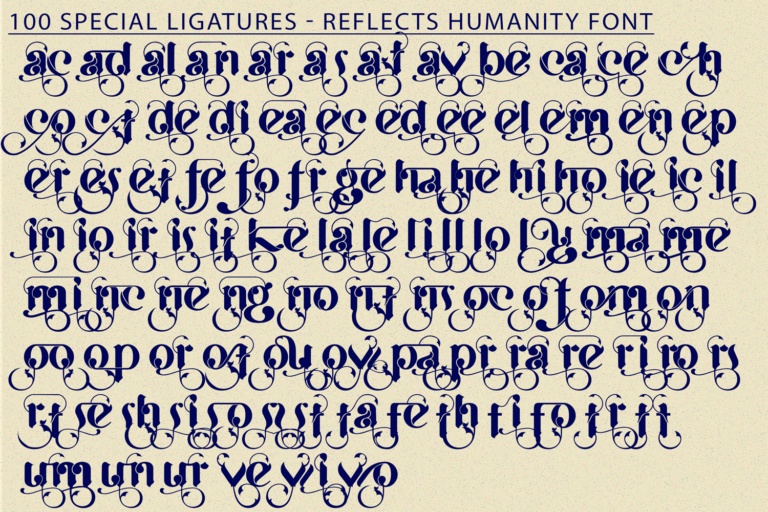 100 SPECIAL LIGATURES - REFLECTS HUMANITY FONT
ac ad al an ar as at av be ca ce ch
co ct de di ea ec ed ee el em en ep
er es et fe fo fr ge ha he hi ho ie ic il
in io ir is it ke la le li ll lo ly ma me
mi nc ne ng no nt ns oc of om on
oo op or ot ou ov pa pr ra re ri ro rs
rt se sh si so ss st ta te th ti to tr tt
um un ur ve vi vo